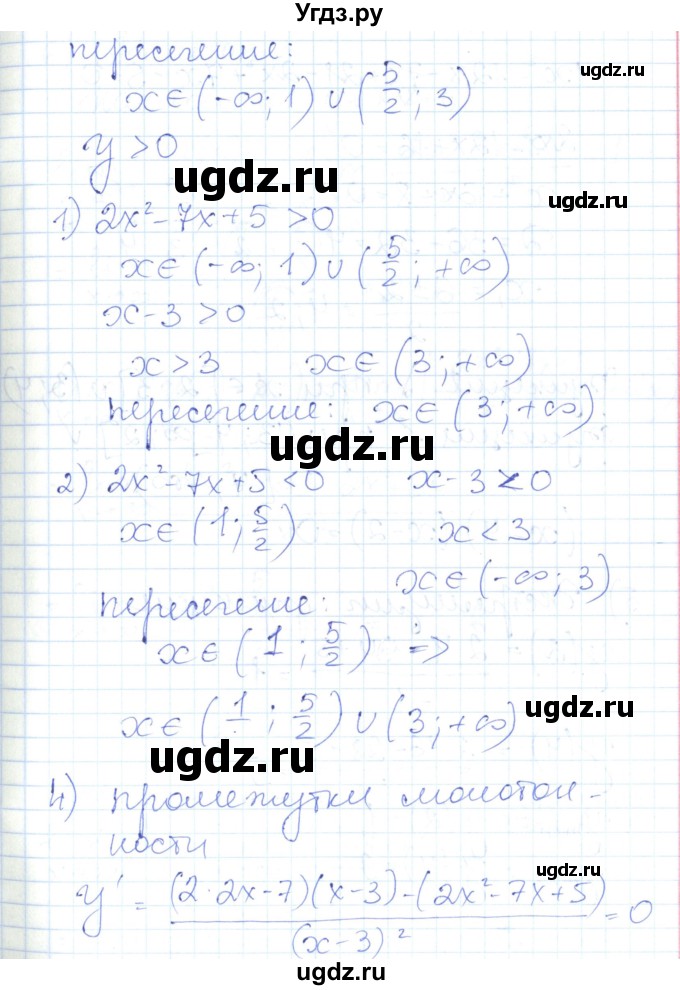 Угдз.ру
пересечение:
ugdz.ru
x∈(-∞; 1)∪(5/2; 3)
y>0
ugdz.ru
ugdz.ru
1) 2x²-7x+5>0
x∈(-∞; 1)∪(5/2; +∞)
x-3>0
x>3 x∈(3;+∞)
ugdz.ru
пересечение: x∈(3;+∞)
ugdz.ru
2) 2x²-7x+5<0 x-3<0
x∈(1; 5/2) x<3
x∈(-∞; 3)
ugdz.ru
пересечение:
x∈(1; 5/2) =>
x∈(1; 5/2)∪(3;+∞)
ugdz.ru
ugdz.ru
4) промежутки монотон-
ности
ugdz.ru
y' = ((2·2x-7)(x-3)-(2x²-7x+5))/(x-3)² = 0
ugdz.ru